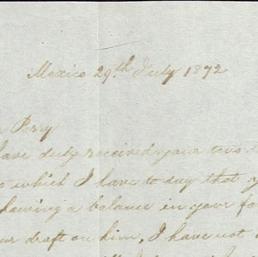 Mexico 29th July 1872
Pery
have duly received your two
to which I have to say that
shewing a balance in your fa
ur draft on him, I have not